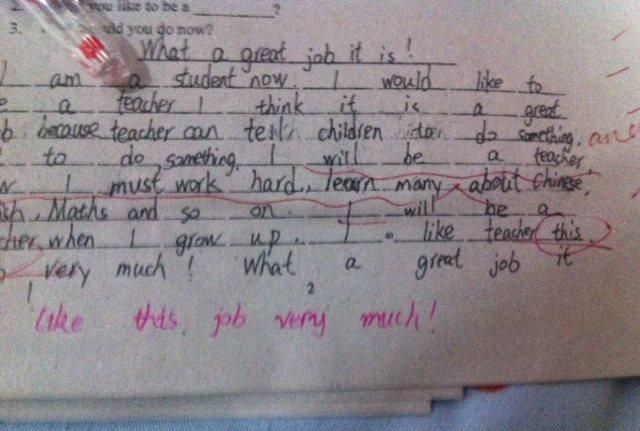 you like to be a ________?
3. ld you do now?
What a great job it is!
I am a student now. I would like to
a teacher I think it is a great
b because teacher can tell children to do something. an
to do something. I will be a teacher,
I must work hard, learn many about Chinese,
ish, Maths and so on. I will be a
cher when I grow up. I like teacher this
very much! What a great job it
1 2
Like this job very much!